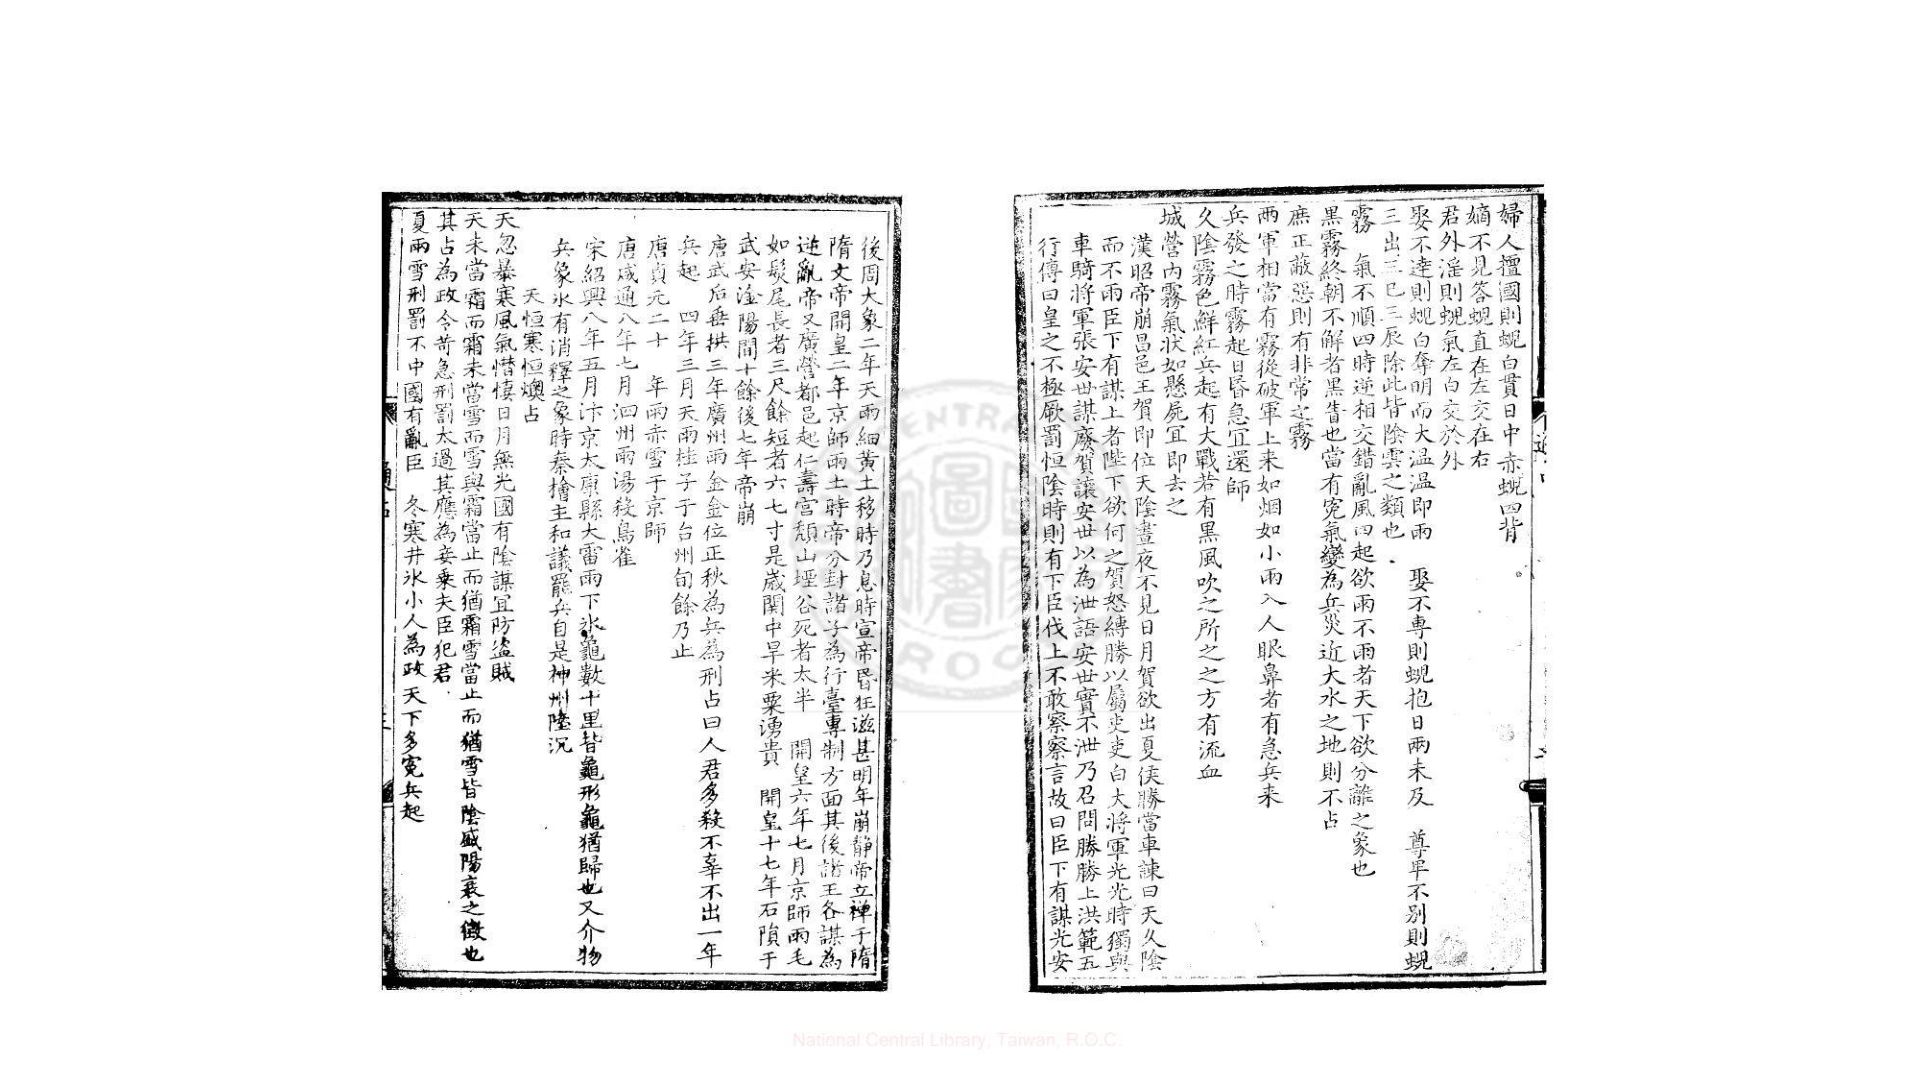 婦人擅國則蜺白貫日中赤蜺四背
嫡不見答蜺直在左交在右
君外淫則蜺氣左白交於外
娶不逹則蜺白奪明而大温温即雨　娶不専則蜺抱日兩未及　尊卑不别則蜺
三出三已三辰除此皆陰雲之類也
霧　氣不順四時逆相交錯亂風四起欲雨不雨者天下欲分離之象也
黒霧終朝不解者黒眚也當有寃氣變為兵災近大水之地則不占
庶正蔽惡則有非常之霧
兩軍相當有霧從破軍上来如烟如小雨入人眼鼻者有急兵来
兵發之時霧起日昬急宜還師
久陰霧色鮮紅兵起有大戰若有黒風吹之所之之方有流血
城營内霧氣状如懸屍宜即去之
漢昭帝崩昌邑王賀即位天陰晝夜不見日月賀欲出夏侯勝當車諫曰天久陰
而不雨臣下有謀上者陛下欲何之賀怒縛勝以屬吏吏白大將軍光光時獨與
車騎將軍張安世謀廢賀讓安世以為泄語安世實不泄乃召問勝勝上洪範五
行傳曰皇之不極厥罰恒陰時則有下臣伐上不敢察察言故曰臣下有謀光安
後周大象二年天雨細黄土移時乃息時宣帝昬狂滋甚明年崩静帝立禅于隋
隋文帝開皇二年京師雨土時帝分封諸子為行臺專制方面其後諸王各謀為
逆亂帝又廣營都邑起仁壽宫頽山堙谷死者太半　開皇六年七月京師雨毛
如髮尾長者三尺餘短者六七寸是歲関中旱米粟湧貴　開皇十七年石隕于
武安滏陽間十餘後七年帝崩
唐武后垂拱三年廣州雨金金位正秋為兵為刑占曰人君多殺不辜不出一年
兵起　四年三月天雨桂子于台州旬餘乃止
唐貞元二十　年雨赤雪于京師
唐咸通八年七月泗州雨湯殺鳥雀
宋紹興八年五月汴京太康縣大雷雨下氷龜數十里皆龜形龜猶歸也又介物
兵象氷有消釋之象時秦檜主和議罷兵自是神州陸沉
天恒寒恒燠占
天忽暴寒風氣憯悽日月無光國有陰謀宜防盗賊
天未當霜而霜未當雪而雪與霜當止而猶霜雪當止而猶雪皆陰盛陽衰之徴也
其占為政令苛急刑罰太過其應為妾乗夫臣犯君
夏雨雪刑罰不中國有亂臣　冬寒井氷小人為政天下多寃兵起
National Central Library, Taiwan, R.O.C.